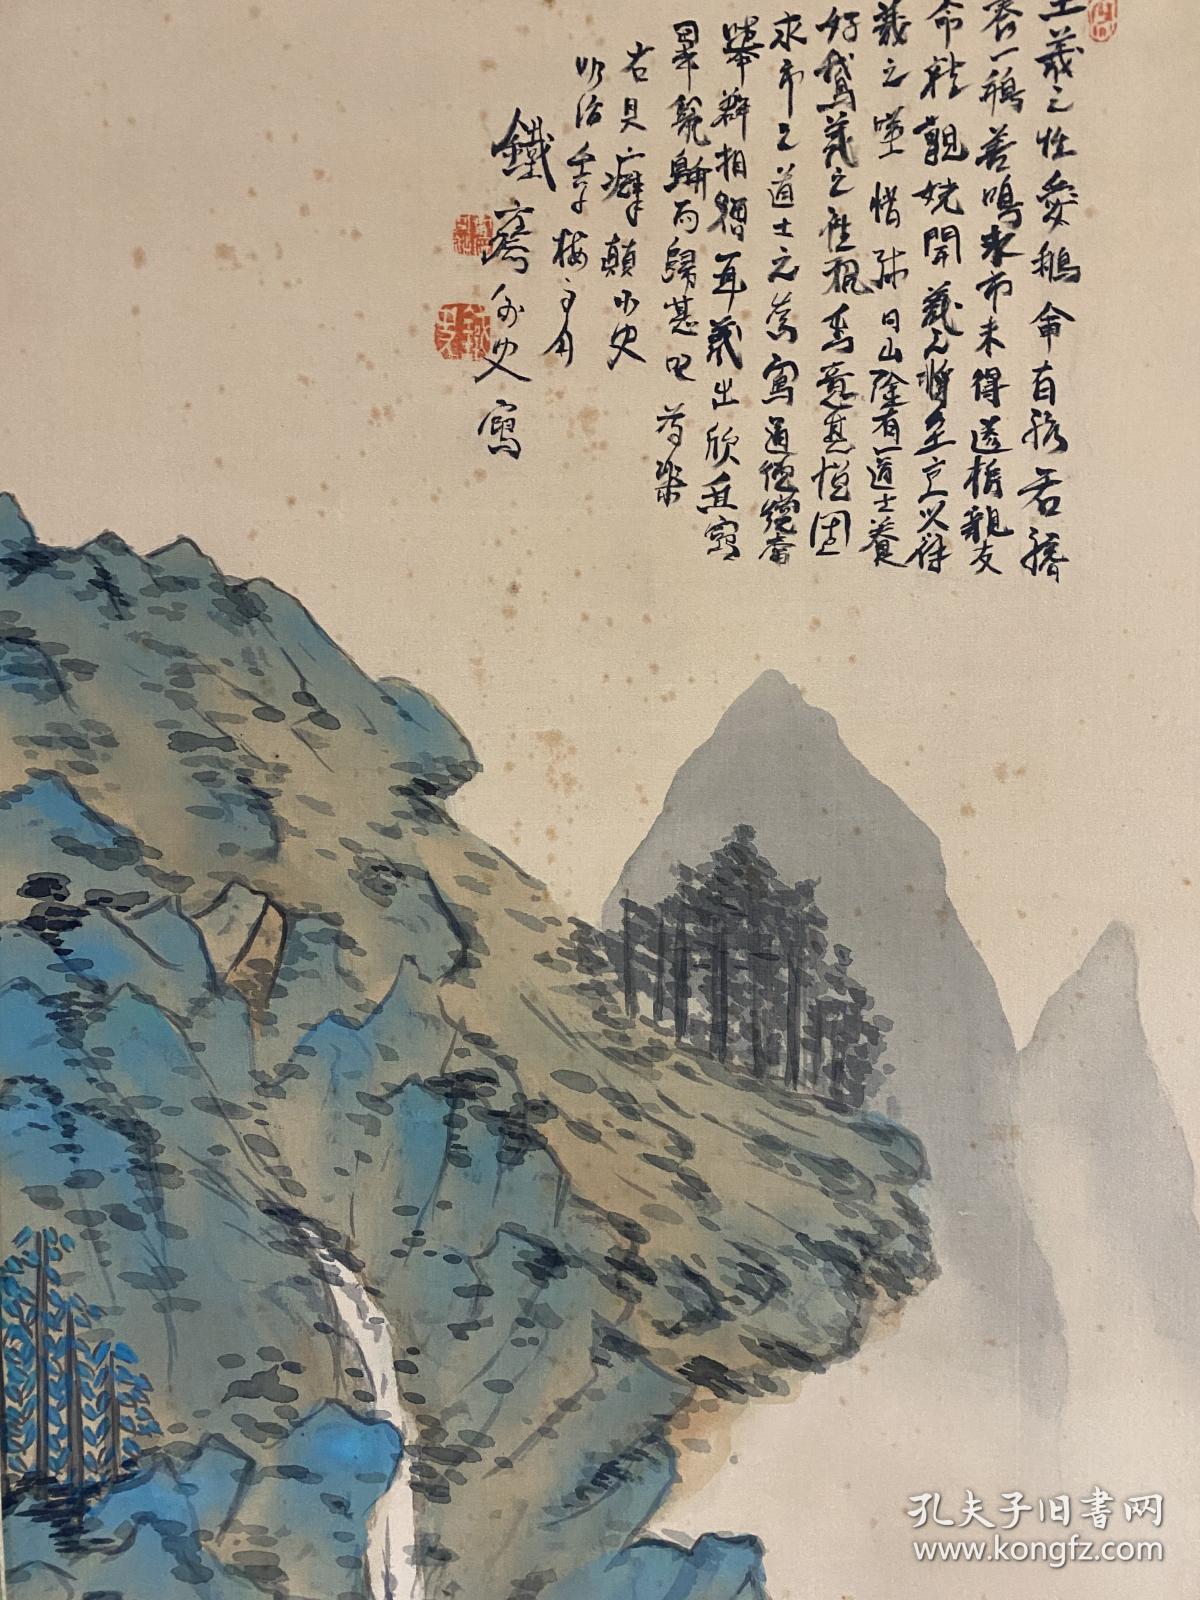 王羲之性愛鵝會有孤居
養一鵝善鳴求市未得遂携親友
命駕就觀姥聞羲之將至烹以待
羲之嘆惜弥日山陰有一道士養
好鵝羲之往觀焉意甚悦固
求市之道士云為寫道德經當
舉群相贈耳羲出欣然寫
畢籠鵝而歸甚以為樂
右具癖顛小史
明治壬子梅
鐵齋外史寫
孔夫子旧书网
www.kongfz.com